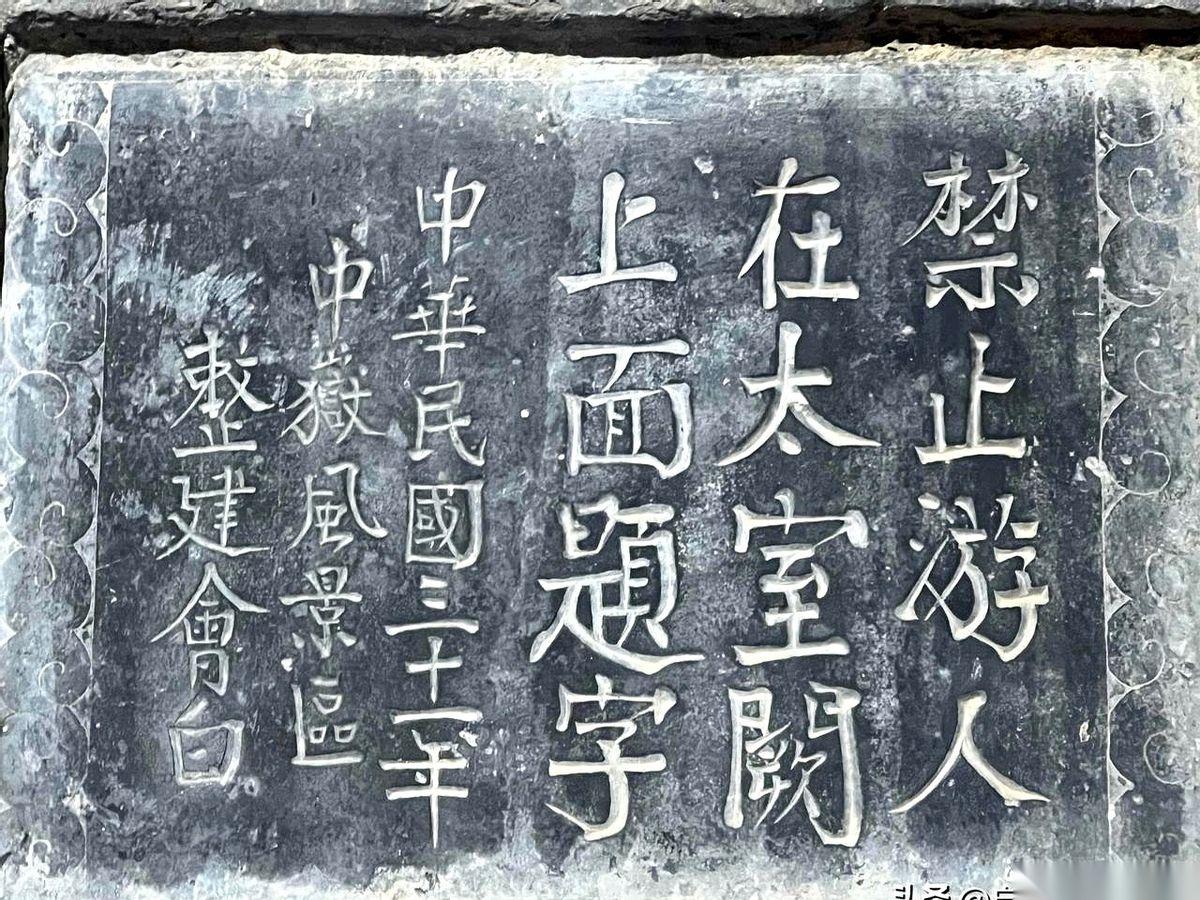 禁止游人
在太室闕
上面題字
中華民國三十一年
中嶽風景區
整建會白